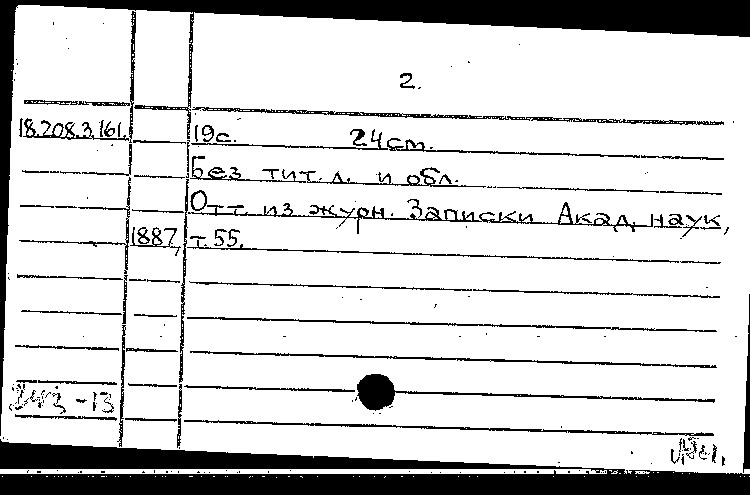 2.
18.208.3.161. 19с. 24см.
Без тит. л. и обл.
Отт. из журн. Записки Акад. наук,
1887, т. 55.
-13